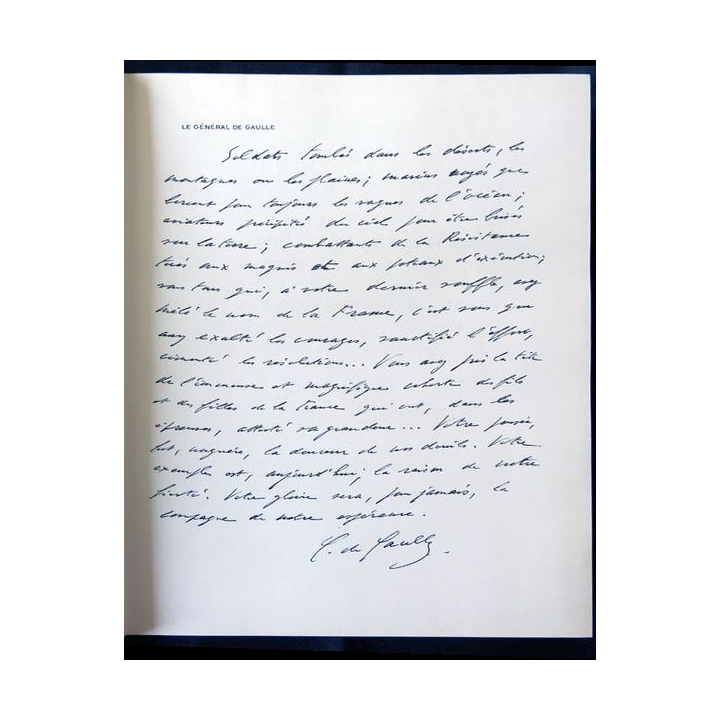 LE GÉNÉRAL DE GAULLE
Soldats tombés dans les déserts, les
montagnes ou les plaines; marins noyés que
bercent pour toujours les vagues de l'océan;
aviateurs précipités du ciel pour être brisés
sur la terre; combattants de la Résistance
tués aux maquis et aux poteaux d'exécution;
vous tous qui, à votre dernier souffle, avez
mêlé le nom de la France, c'est vous qui
avez exalté les courages, sanctifié l'effort,
cimenté les résolutions... Vous avez pris la tête
de l'immense et magnifique cohorte des fils
et des filles de la France qui ont, dans les
épreuves, attesté sa grandeur... Votre pensée,
fut, naguère, la douceur de nos deuils. Votre
exemple est, aujourd'hui, la raison de notre
fierté. Votre gloire sera, pour jamais, la
compagne de notre espérance.
C. de Gaulle.